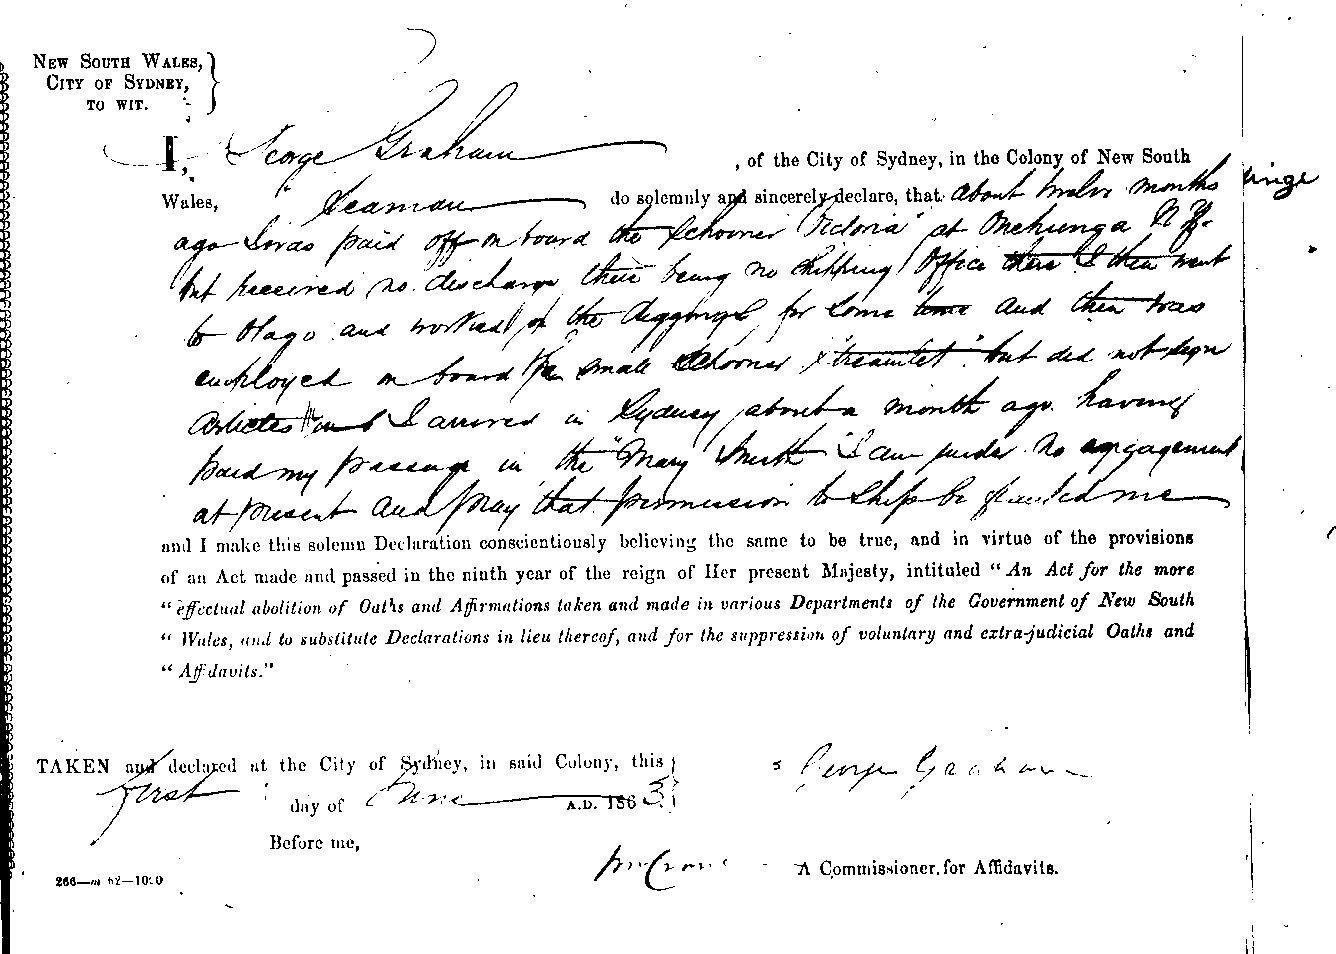 NEW SOUTH WALES,
CITY OF SYDNEY,
TO WIT.
I, George Graham, of the City of Sydney, in the Colony of New South
Wales, Seaman do solemnly and sincerely declare, that about twelve months
ago I was paid off on board the Schooner "Victoria" at Onehunga N Z.
but received no discharge there being no Shipping Office there I then went
to Otago and worked on the diggings for some time and then was
employed on board the small Schooner "Streamlet" but did not sign
Articles and I arrived in Sydney about a month ago having
paid my passage in the "Mary Smith" I am under no engagement
at present and pray that permission to ship be granted me
and I make this solemn Declaration conscientiously believing the same to be true, and in virtue of the provisions
of an Act made and passed in the ninth year of the reign of Her present Majesty, intituled "An Act for the more
"effectual abolition of Oaths and Affirmations taken and made in various Departments of the Government of New South
"Wales, and to substitute Declarations in lieu thereof, and for the suppression of voluntary and extra-judicial Oaths and
"Affidavits."
TAKEN and declared at the City of Sydney, in said Colony, this
first day of June A.D. 1863
George Graham
Before me,
A Commissioner for Affidavits.